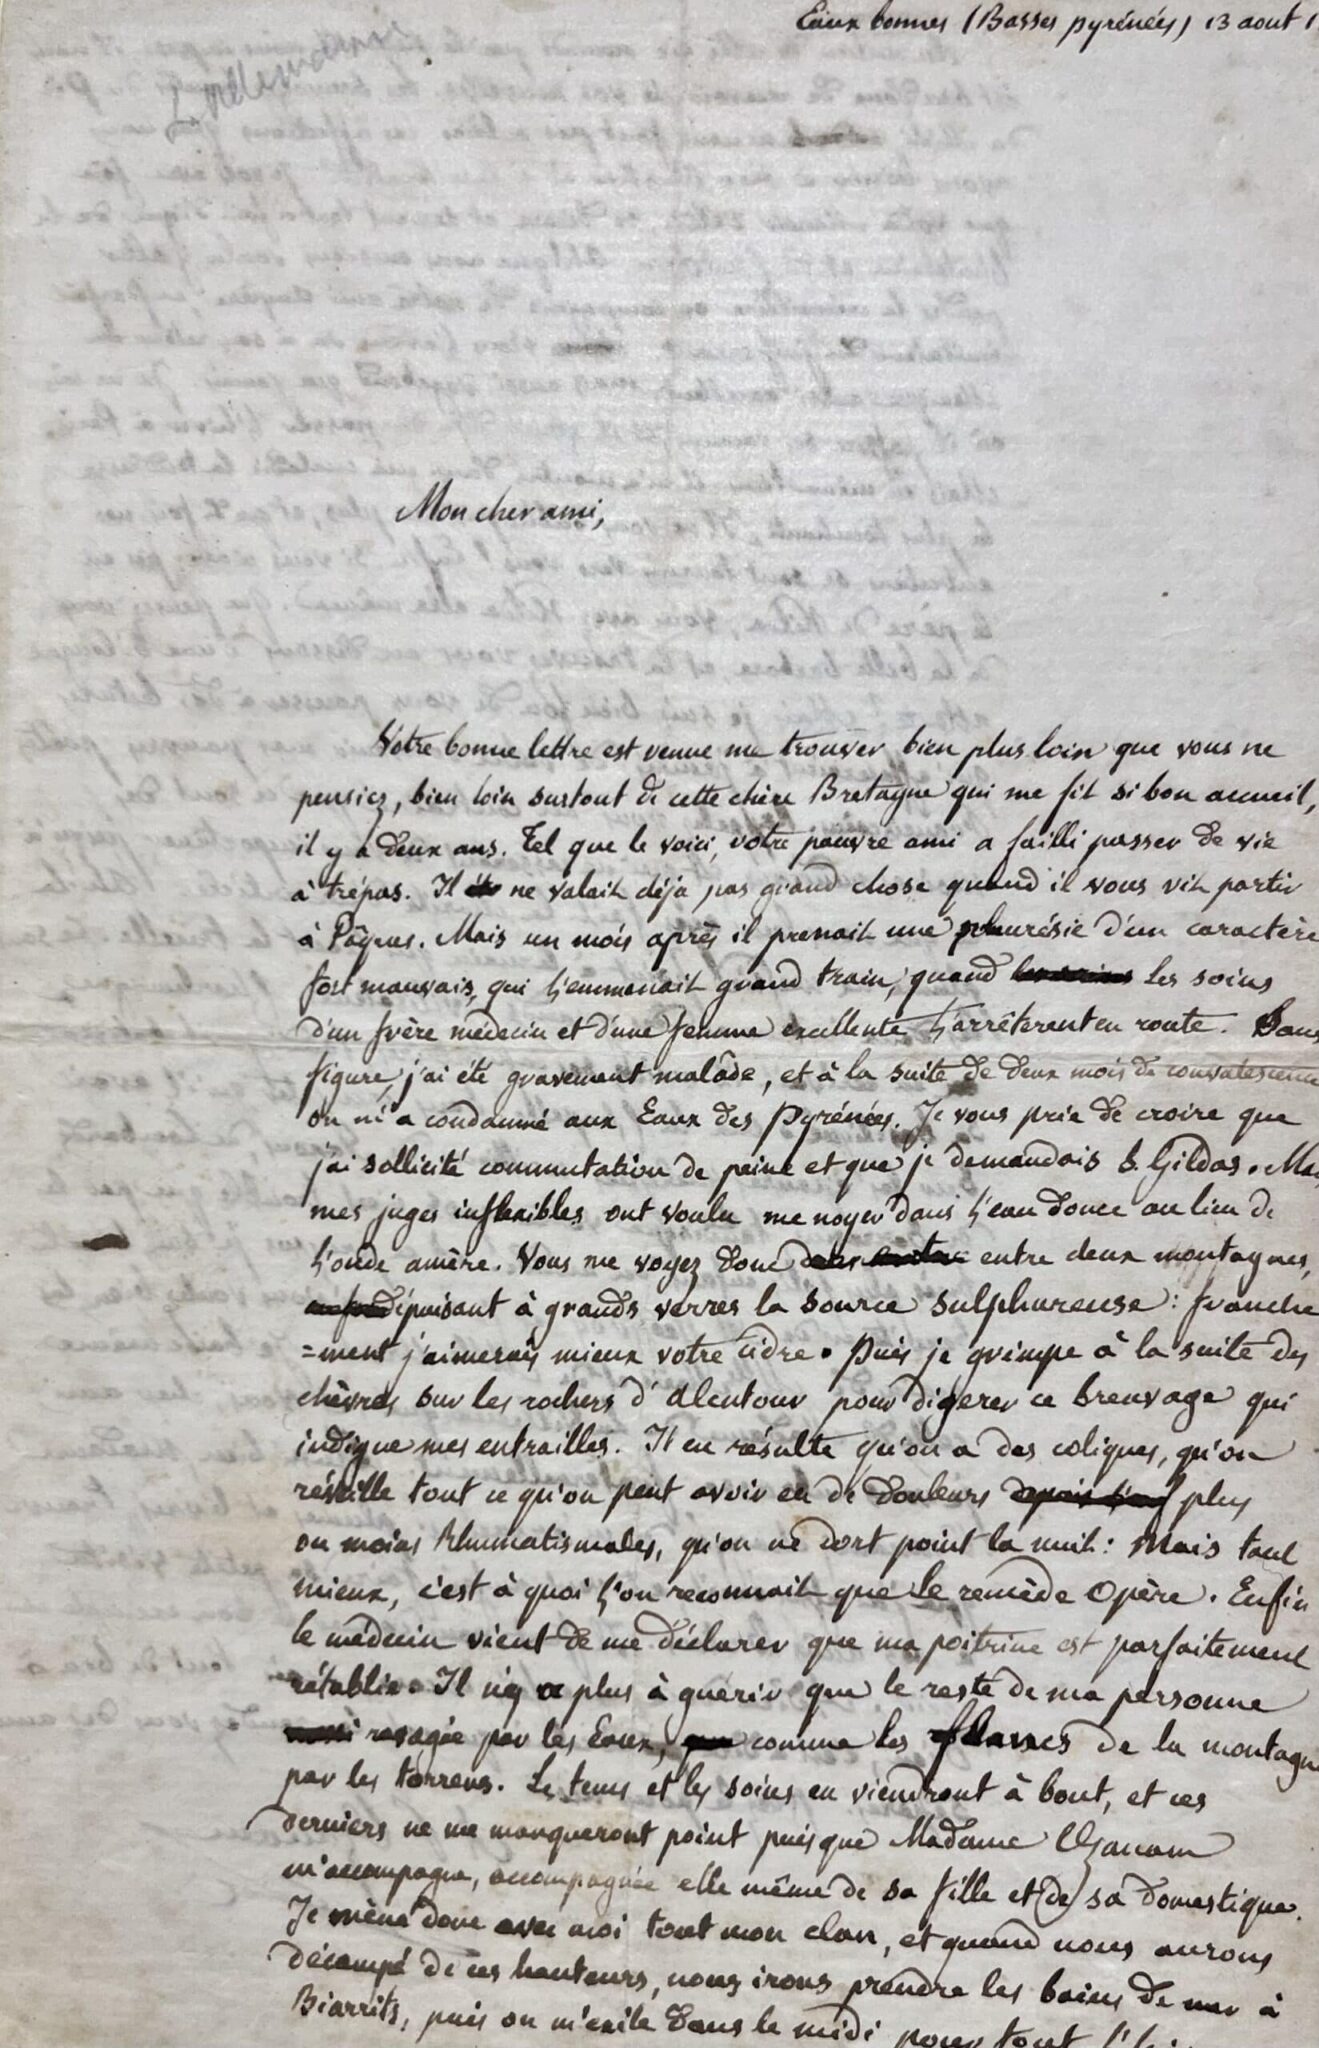 Eaux bonnes (Basses pyrénées) 13 aout 1
Mon cher ami,
Votre bonne lettre est venue me trouver bien plus loin que vous ne
pensiez, bien loin surtout de cette chère Bretagne qui me fit si bon accueil,
il y a deux ans. Tel que le voici, votre pauvre ami a failli passer de vie
à trépas. Il ne valait déja pas grand chose quand il vous vit partir
à Pâques. Mais un mois après il prenait une pleurésie d'un caractère
fort mauvais, qui l'emmenait grand train, quand les soins
d'un frère médecin et d'une femme excellente l'arrêterent en route. Sans
figure, j'ai été gravement malâde, et à la suite de deux mois de convalescence
on m'a condamné aux Eaux des Pyrénées. Je vous prie de croire que
j'ai sollicité commutation de peine et que je demandais S. Gildas. Ma
mes juges inflexibles ont voulu me noyer dans l'eau douce au lieu de
l'onde amère. Vous me voyez donc entre deux montagnes,
épuisant à grands verres la source sulphureuse : franche
=ment j'aimerais mieux votre cidre. Puis je grimpe à la suite des
chèvres sur les rochers d'alentour pour digerer ce breuvage qui
indigne mes entrailles. Il en résulte qu'on a des coliques, qu'on
réveille tout ce qu'on peut avoir eu de douleurs plus
ou moins Rhumatismales, qu'on ne dort point la nuit : Mais tant
mieux, c'est à quoi l'on reconnait que le remède opère. Enfin
le médecin vient de me déclarer que ma poitrine est parfaitement
rétablie. Il n'y a plus à guérir que le reste de ma personne
ravagée par les Eaux, comme les flancs de la montagne
par les torrens. Le tems et les soins en viendront à bout, et ces
derniers ne me manqueront point puisque Madame Ozanam
m'accompagne, accompagnée elle même de sa fille et (de) sa domestique.
Je mène donc avec moi tout mon clan, et quand nous aurons
décampé de ces hauteurs, nous irons prendre les bains de mer à
Biarrits, puis on m'exile dans le midi pour tout